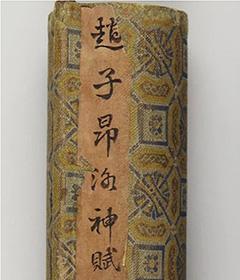 趙子昂洛神賦